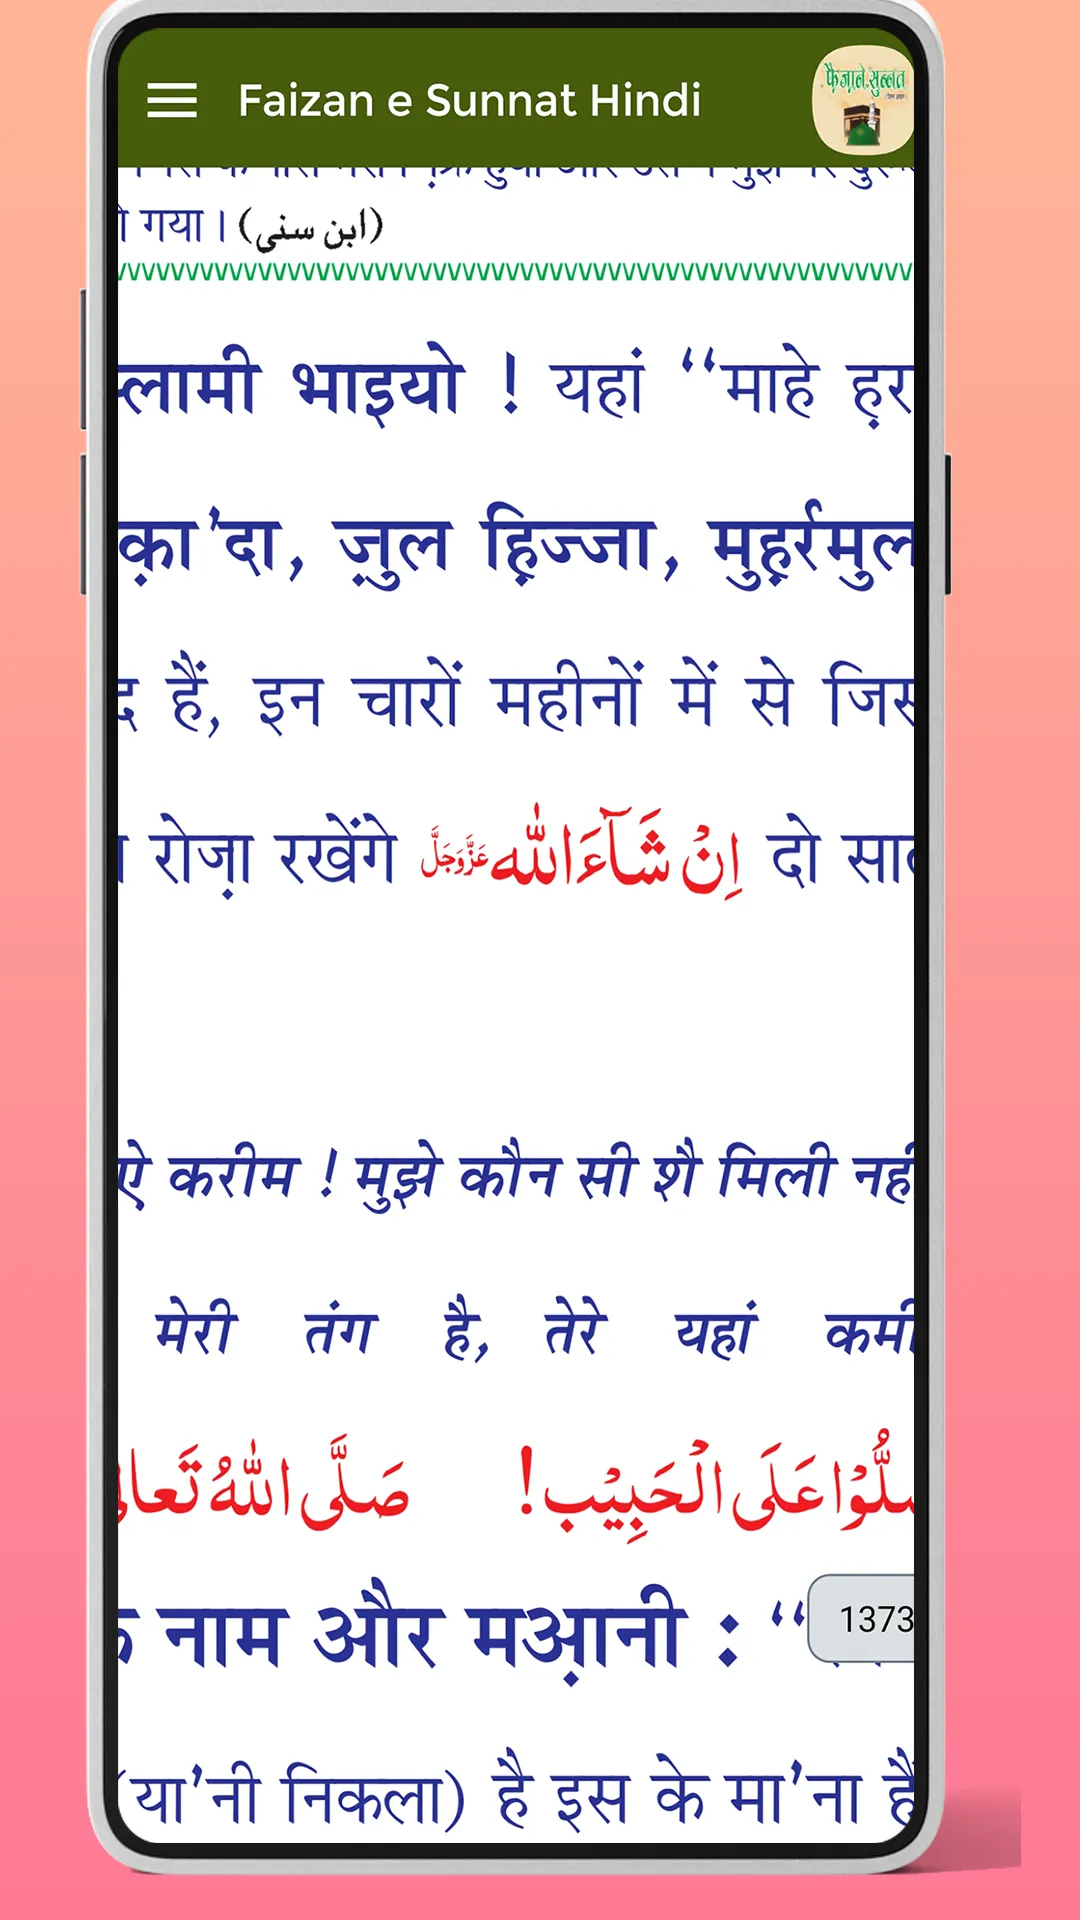 Faizan e Sunnat Hindi
फ़ैज़ाने सुन्नत
गया । (ابن سنی)
लामी भाइयो ! यहां “माहे ह़र
क़ा’दा, ज़ुल ह़िज्जा, मुह़र्रमुल
हैं, इन चारों महीनों में से जिस
रोज़ा रखेंगे اِنْ شَآءَاللّٰه عَزَّوَجَلَّ दो
ऐ करीम ! मुझे कौन सी शै मिली नहीं
मेरी तंग है, तेरे यहां कमी
صَلُّوْا عَلَی الْحَبِیْب! صَلَّی اللّٰهُ تَعالٰی
नाम और मआ़नी : “
1373
(या’नी निकला) है इस के मा’ना हैं